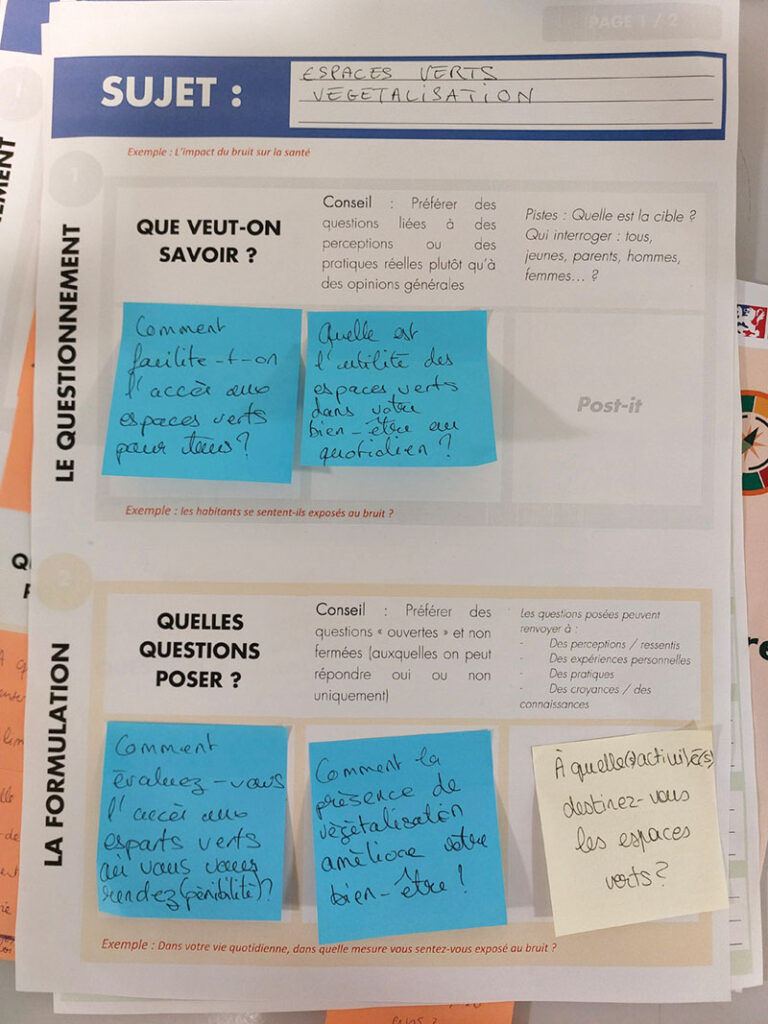 PAGE 1 / 2
SUJET :
ESPACES VERTS
VEGETALISATION
Exemple : L'impact du bruit sur la santé
1
LE QUESTIONNEMENT
QUE VEUT-ON
SAVOIR ?
Conseil : Préférer des
questions liées à des
perceptions ou des
pratiques réelles plutôt qu'à
des opinions générales
Pistes : Quelle est la cible ?
Qui interroger : tous,
jeunes, parents, hommes,
femmes... ?
Comment
facilite-t-on
l'accès aux
espaces verts
pour tous ?
Quelle est
l'utilité des
espaces verts
dans votre
bien-être au
quotidien ?
Post-it
Exemple : les habitants se sentent-ils exposés au bruit ?
2
LA FORMULATION
QUELLES
QUESTIONS
POSER ?
Conseil : Préférer des
questions « ouvertes » et non
fermées (auxquelles on peut
répondre oui ou non
uniquement)
Les questions posées peuvent
renvoyer à :
- Des perceptions / ressentis
- Des expériences personnelles
- Des pratiques
- Des croyances / des
connaissances
Comment
évaluez-vous
l'accès aux
esparts verts
où vous vous
rendez (pénibilité) ?
Comment la
présence de
végétalisation
améliore votre
bien-être !
À quelle(s) activité(s)
destinez-vous
les espaces
verts ?
Exemple : Dans votre vie quotidienne, dans quelle mesure vous sentez-vous exposé au bruit ?